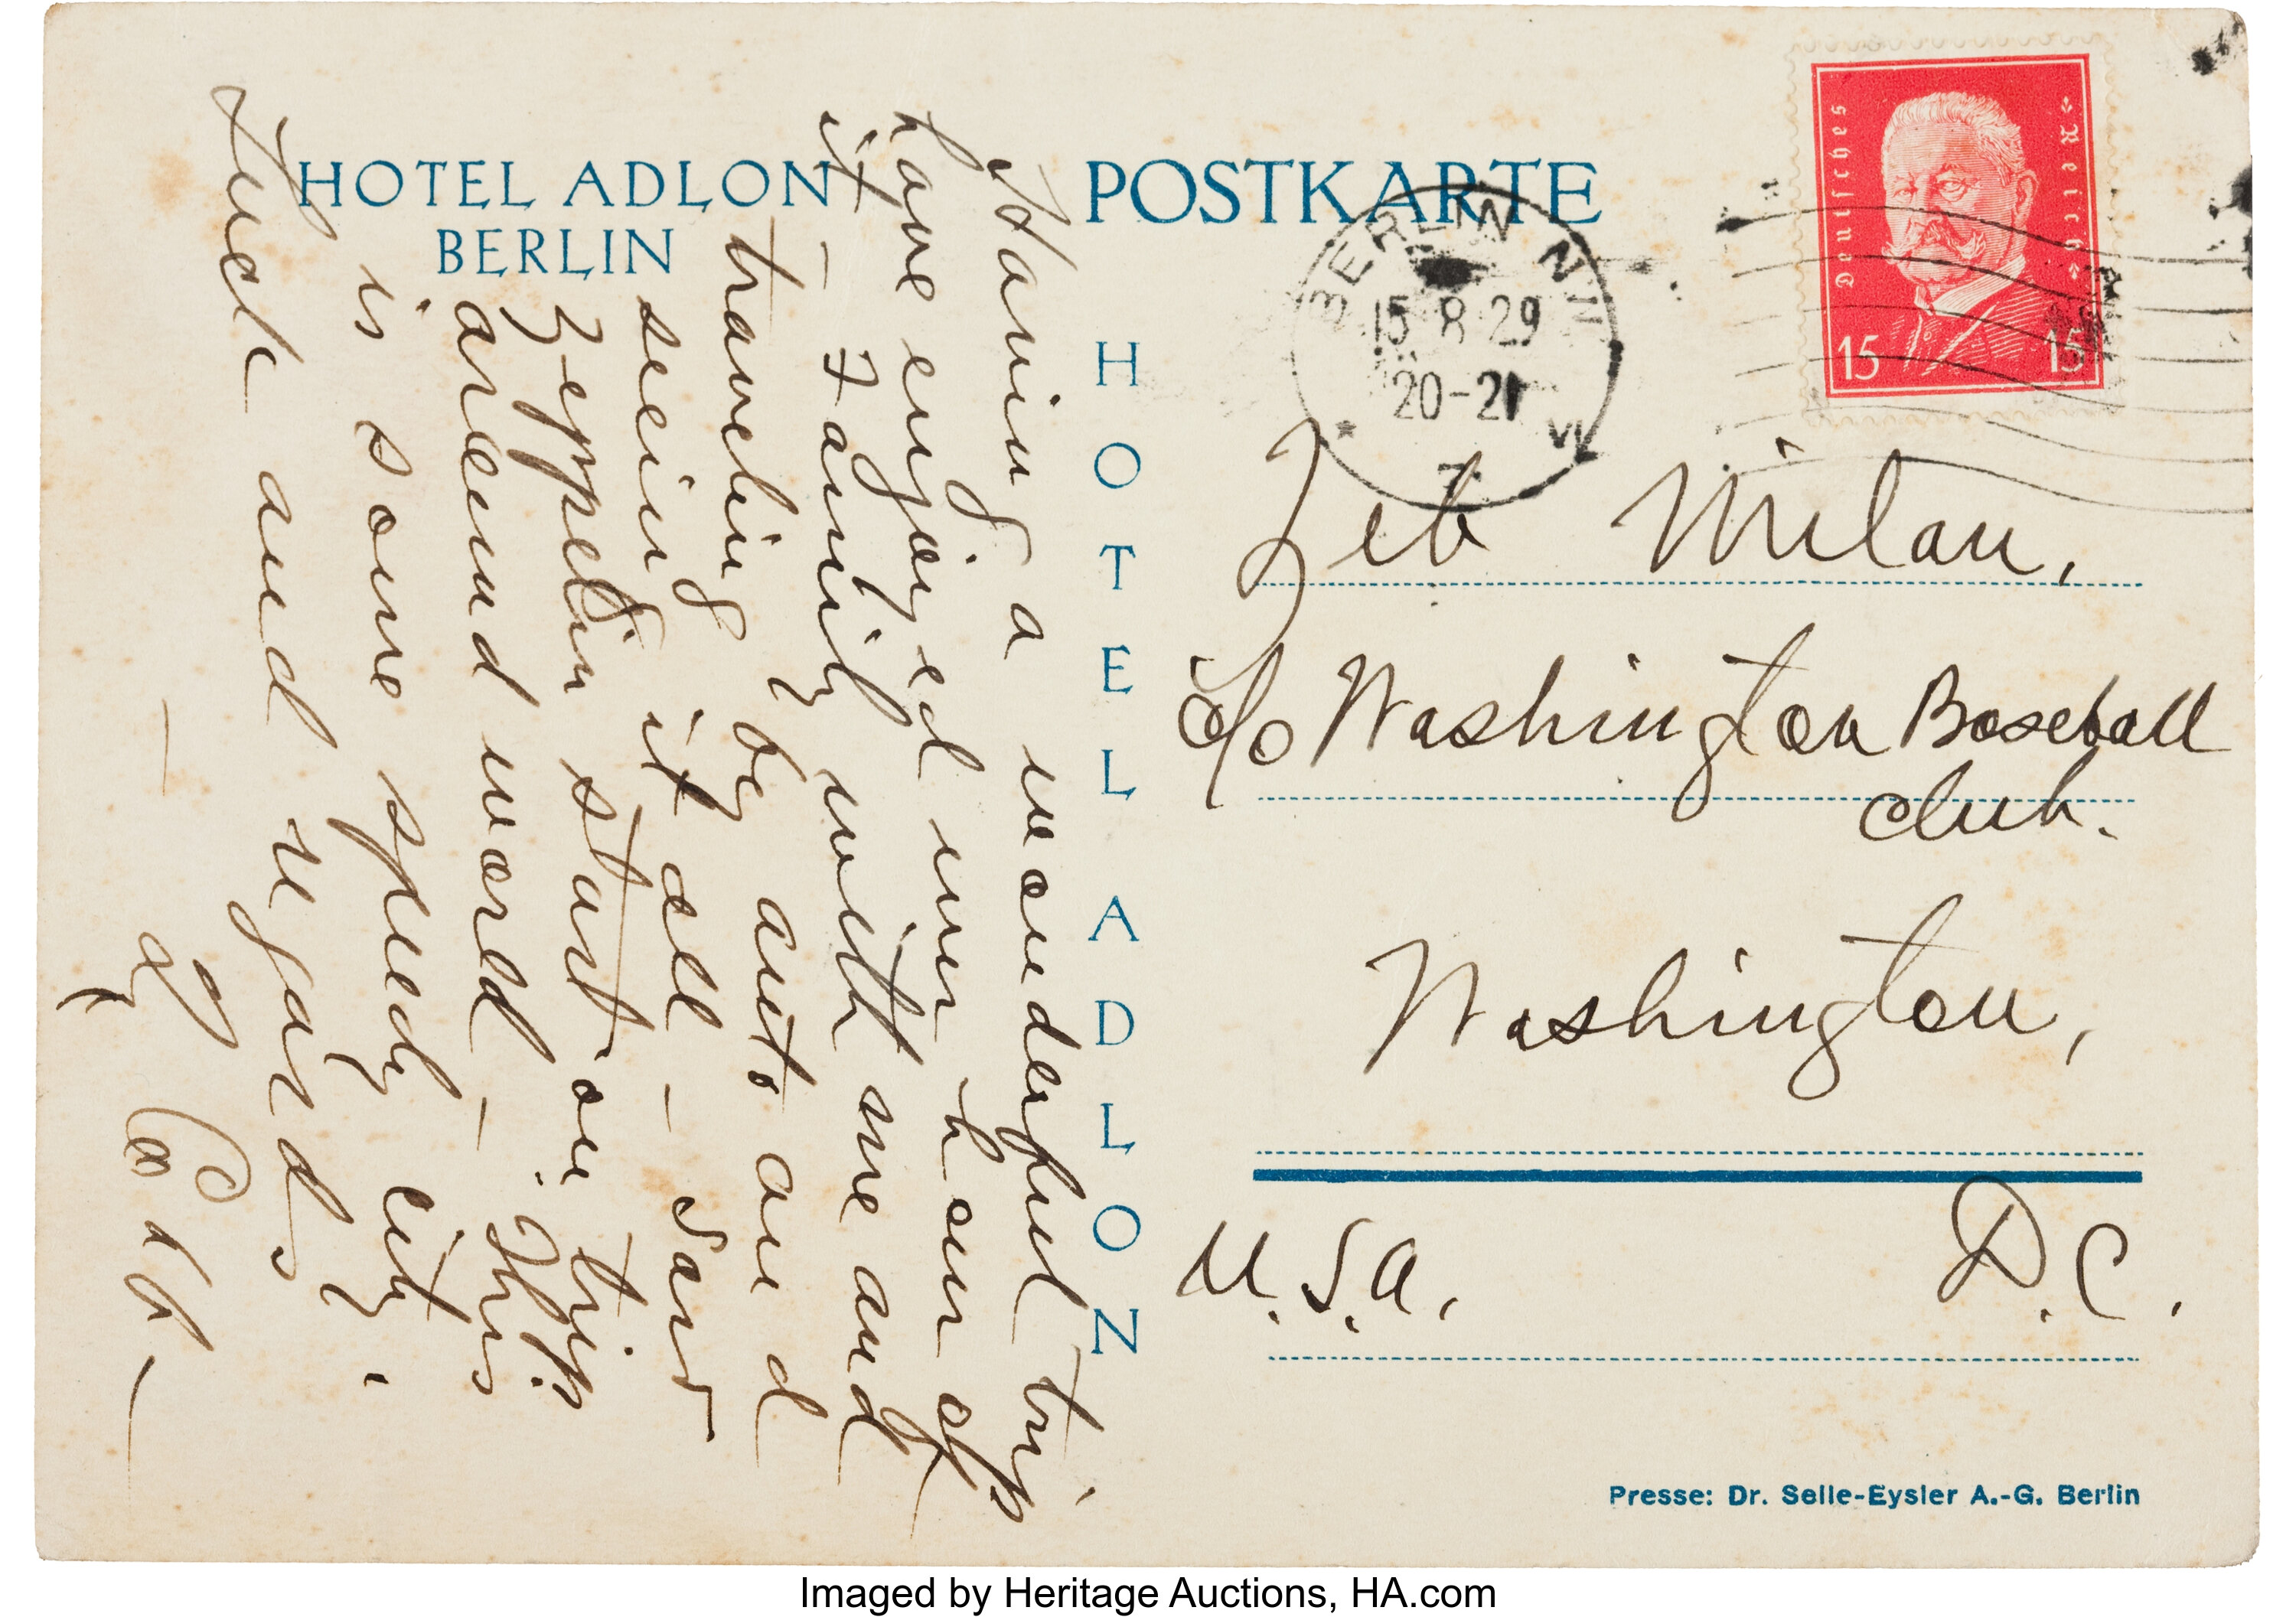 HOTEL ADLON
BERLIN
POSTKARTE
Deutsches Reich
15 15
BERLIN N
15 8 29
20-21
Having a wonderful trip
have enjoyed every hour of
it – Family with me and
traveling by auto and
seeing it all – Saw
Zeppelin start on trip
around world – This
is some speedy city.
Luck and regards
Ty Cobb –
HOTEL ADLON
Zeb Milan,
c/o Washington Baseball
Club.
Washington,
D.C.
U.S.A.
Presse: Dr. Selle-Eysler A.-G. Berlin
Imaged by Heritage Auctions, HA.com